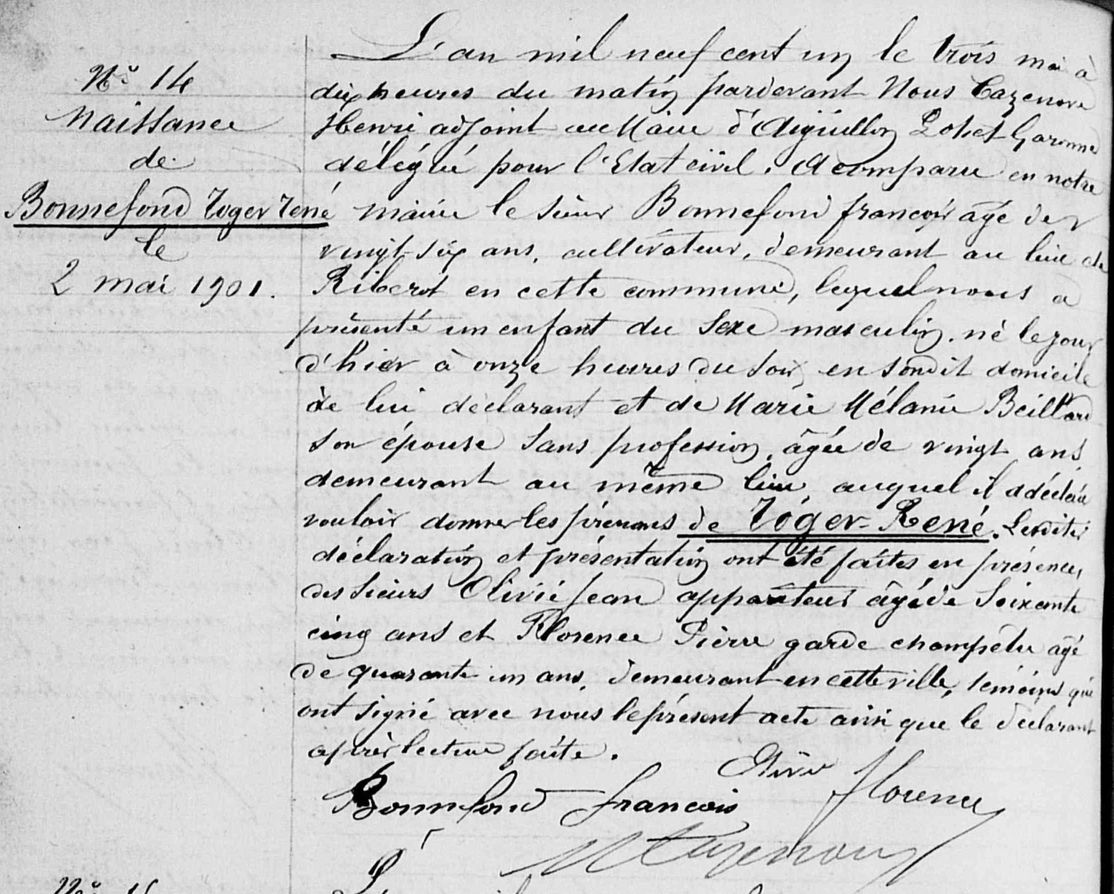 N° 14
Naissance
de
Bonnefond Roger René
le
2 mai 1901.
L'an mil neuf cent un le trois mai à
dix heures du matin pardevant Nous Cazenove
Henri adjoint au Maire d'Aiguillon Lot et Garonne
délégué pour l'Etat civil. A comparu en notre
mairie le sieur Bonnefond françois âgé de
vingt six ans, cultivateur, demeurant au lieu de
Riberot en cette commune, lequel nous a
présenté un enfant du sexe masculin, né le jour
d'hier à onze heures du soir en sondit domicile
de lui déclarant et de Marie Mélanie Beillard
son épouse sans profession, âgée de vingt ans
demeurant au même lieu auquel il a déclaré
vouloir donner les prénoms de Roger René. Lesdites
déclaration et présentation ont été faites en présence
des sieurs Olivié Jean appariteur âgé de soixante
cinq ans et Florence Pierre garde champêtre âgé
de quarante un ans, demeurant en cette ville, témoins qui
ont signé avec nous le présent acte ainsi que le déclarant
après lecture faite.
Olivié
Florence
Bonnefond francois
HCazenove
N° 15
L'